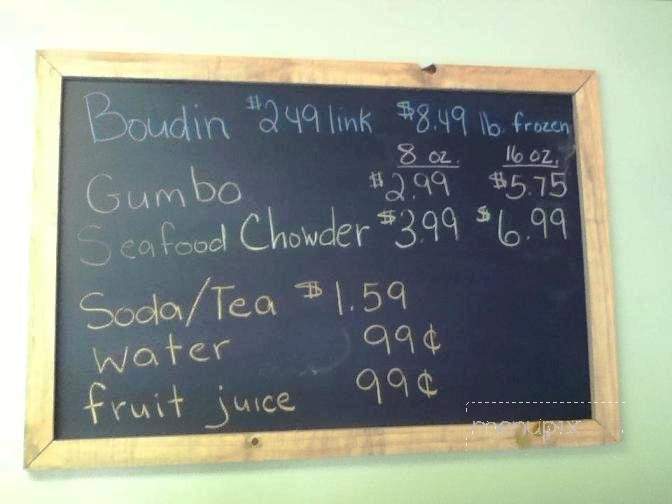 Boudin $249 link $8.49 lb. frozen
8 oz. 16 oz.
Gumbo $2.99 $5.75
Seafood Chowder $3.99 $6.99
Soda/Tea $1.59
water 99¢
fruit juice 99¢
menupix